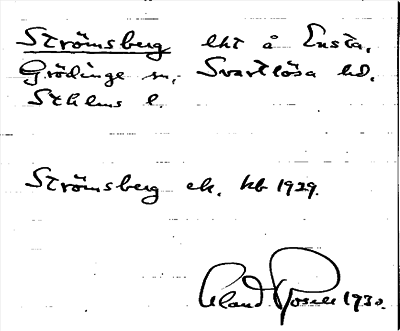 Strömsberg lht å Ensta,
Grödinge sn, Svartlösa hd.
Sthlms l.
Strömsberg ek. kb 1929.
1930.